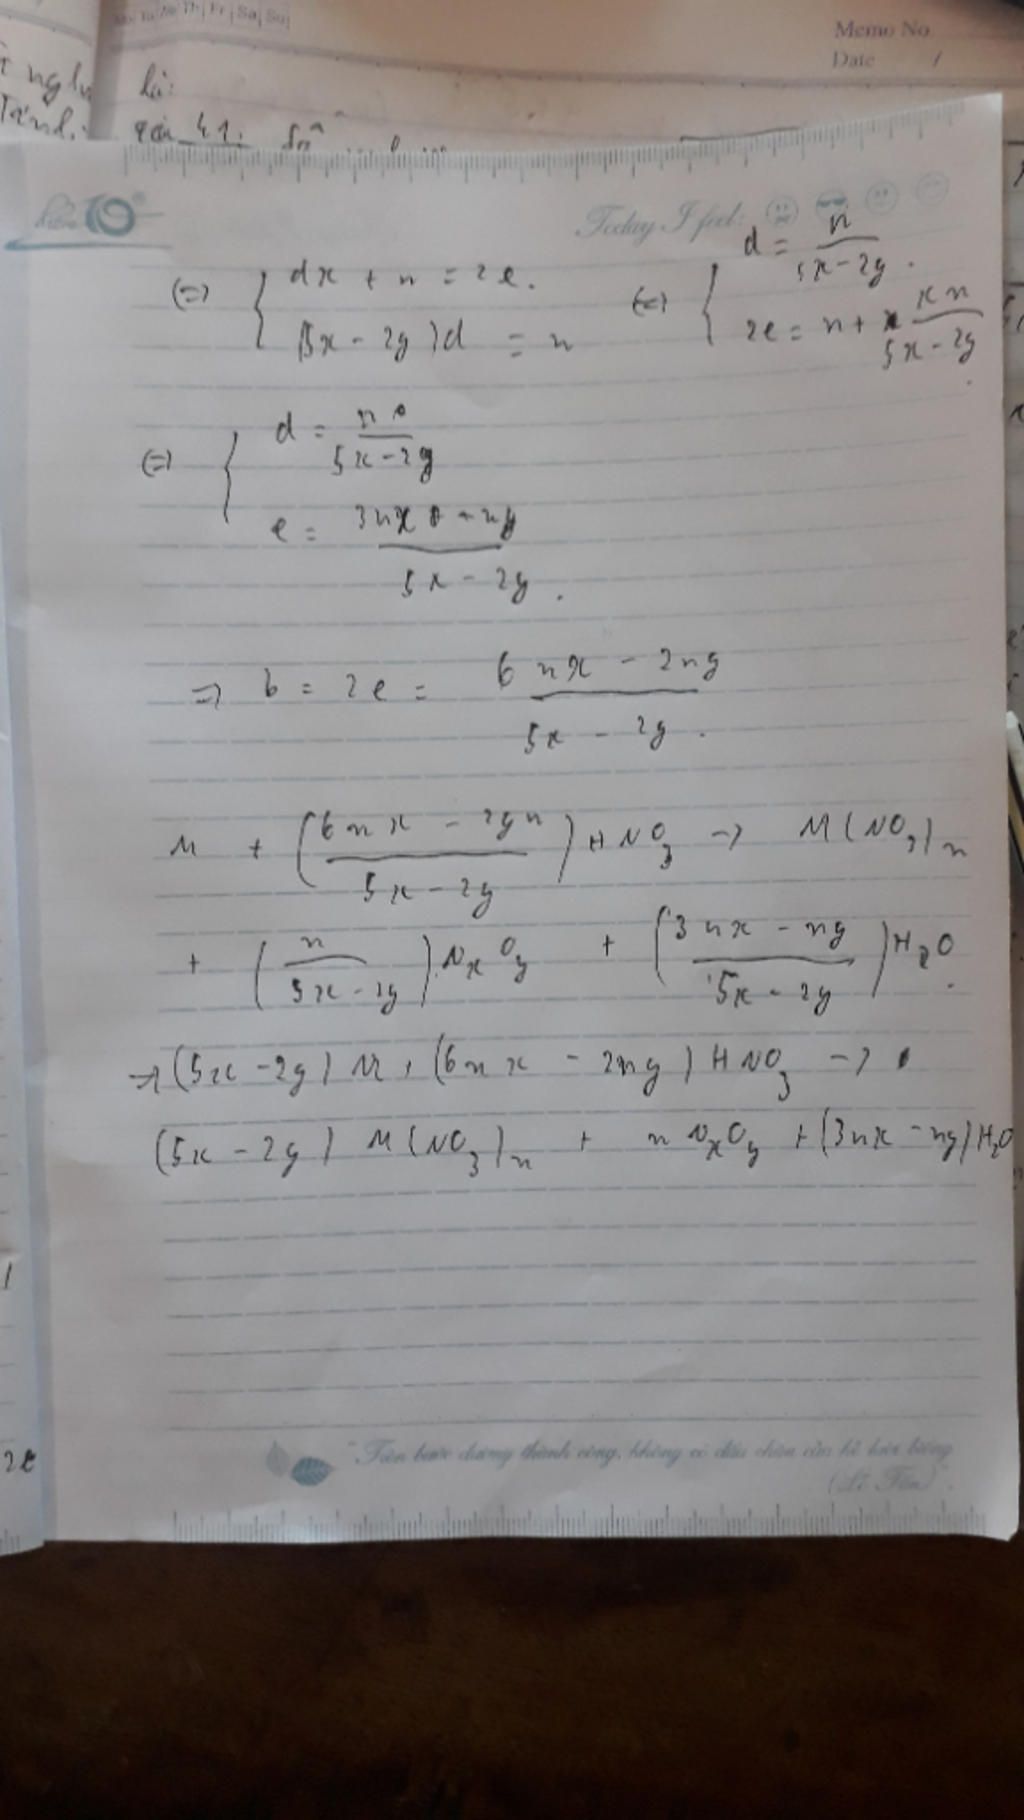 Mo Tu We Th Fr Sa Su
Memo No
Date /
là:
Today I feel:
(=) { dx + n = 2e.
(5x - 2y)d = n
(=) { d = n / (5x - 2y).
2e = n + xn / (5x - 2y).
(=) { d = n / (5x - 2y)
e = (3nx - ny) / (5x - 2y).
=> b = 2e = (6nx - 2ny) / (5x - 2y).
M + ((6nx - 2yn) / (5x - 2y)) HNO3 -> M(NO3)n
+ (n / (5x - 2y)) NxOy + ((3nx - ny) / (5x - 2y)) H2O.
-> (5x - 2y) M + (6nx - 2ny) HNO3 ->
(5x - 2y) M(NO3)n + n NxOy + (3nx - ny) H2O
2e
"Trên bước đường thành công, không có dấu chân của kẻ lười biếng
(Lỗ Tấn)".